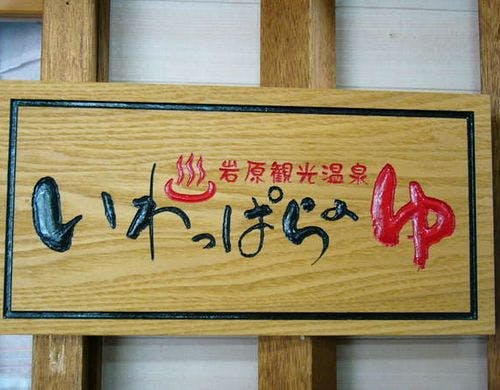 ♨岩原観光温泉
いわっぱらのゆ